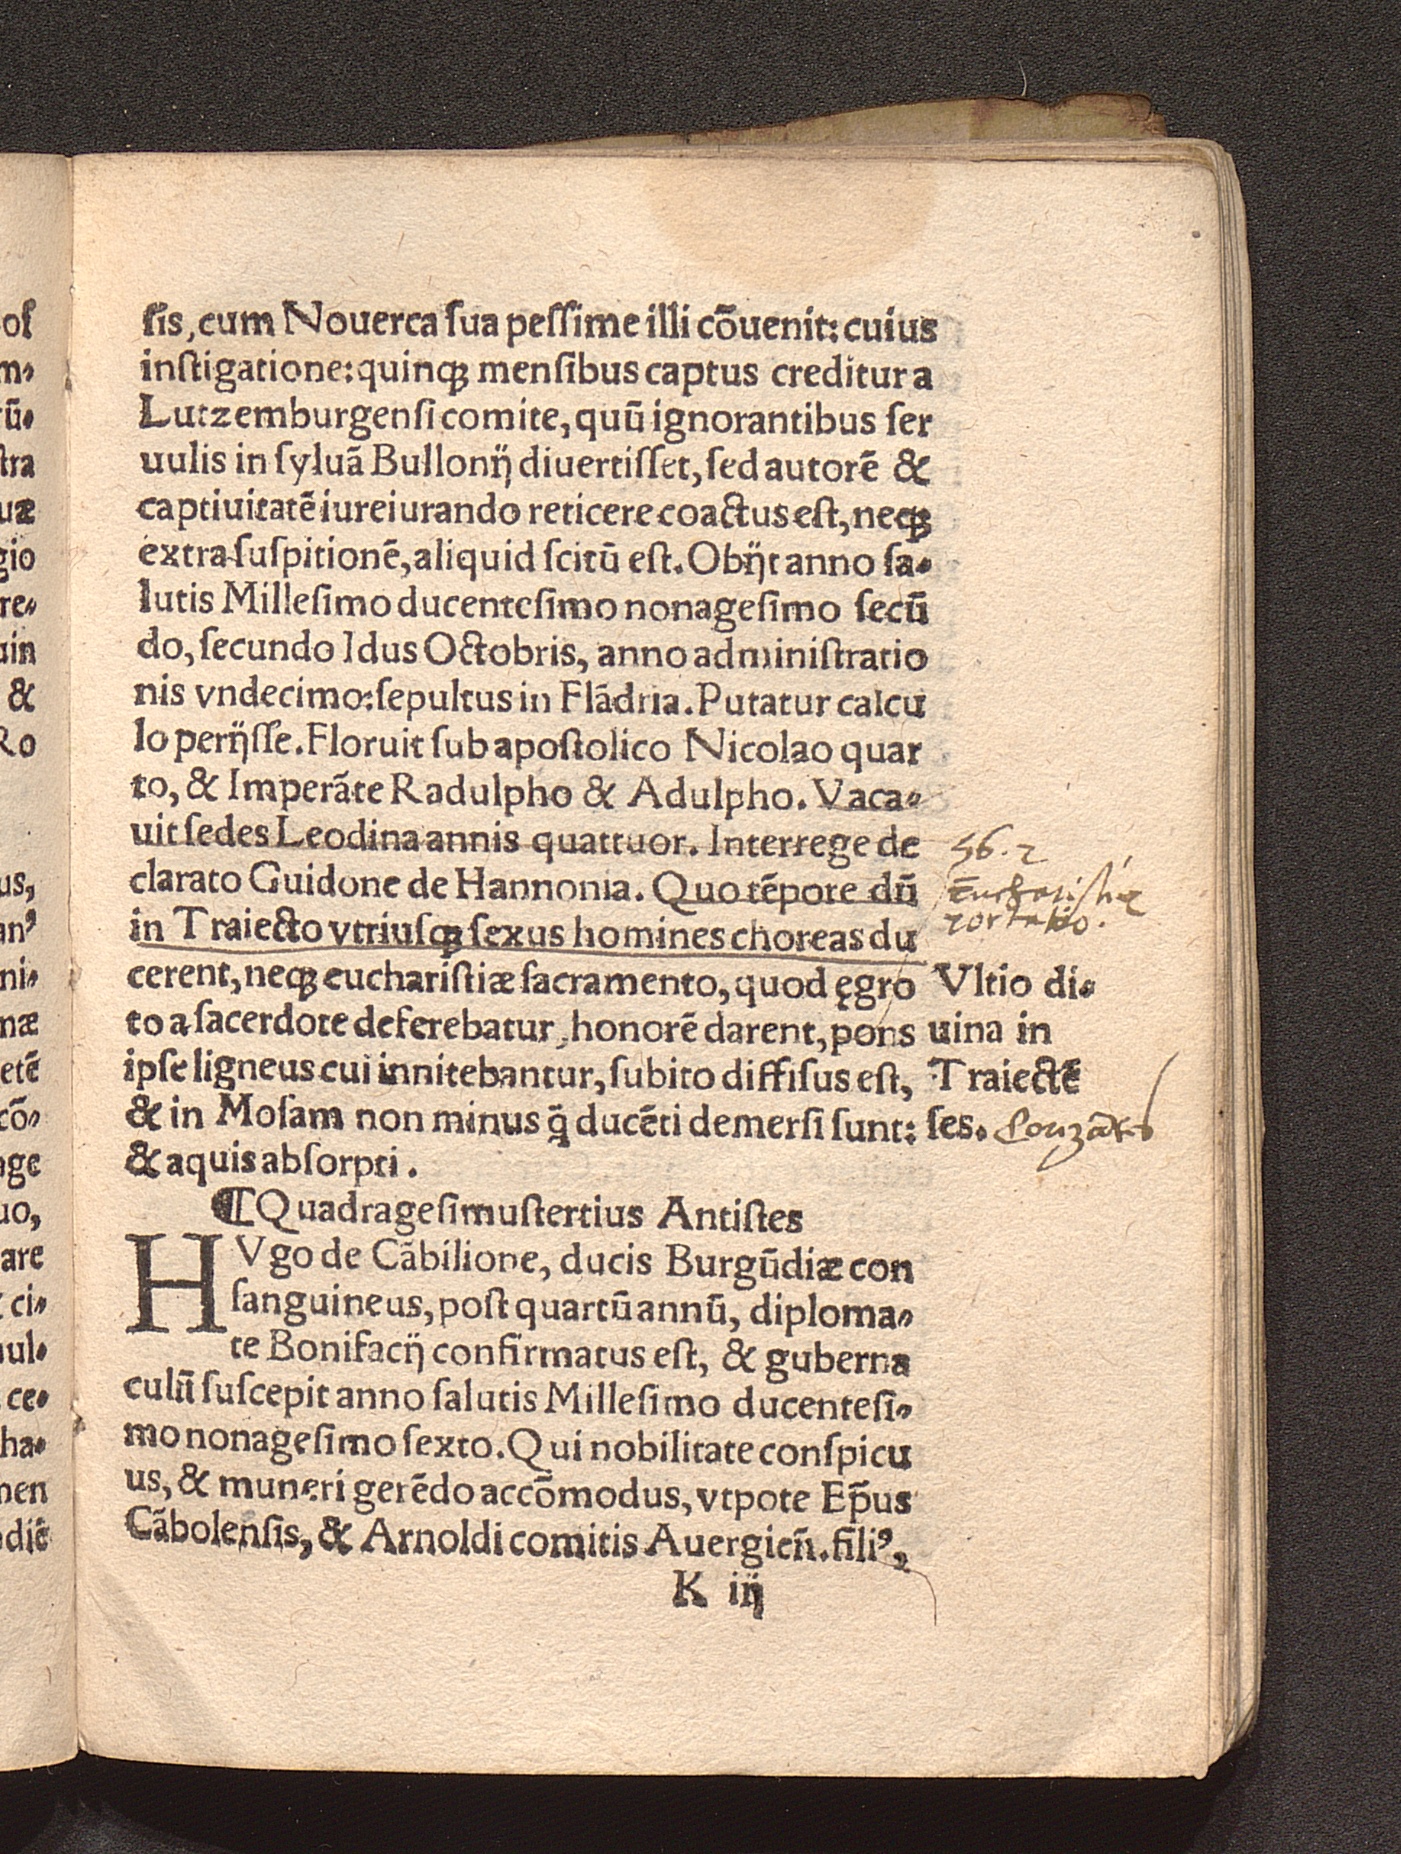 ſis, cum Nouerca ſua peſſime illi cōuenit: cuius
inſtigatione: quinqꝫ menſibus captus creditur a
Lutzemburgenſi comite, quū ignorantibus ſer
uulis in ſyluā Bullonij diuertiſſet, ſed autorē &
captiuitatē iureiurando reticere coactus eſt, neqꝫ
extra ſuſpitionē, aliquid ſcitū eſt. Obijt anno ſa-
lutis Milleſimo ducenteſimo nonageſimo ſecū
do, ſecundo Idus Octobris, anno adminiſtratio
nis vndecimo: ſepultus in Flādria. Putatur calcu
lo perijſſe. Floruit ſub apoſtolico Nicolao quar
to, & Imperāte Radulpho & Adulpho. Vaca-
uit ſedes Leodina annis quattuor. Interrege de
clarato Guidone de Hannonia. Quo tēpore dū
in Traiecto vtriuſqꝫ ſexus homines choreas du
cerent, neqꝫ euchariſtiæ ſacramento, quod ęgro
to a ſacerdote deferebatur, honorē darent, pons
ipſe ligneus cui innitebantur, ſubito diffiſus eſt,
& in Moſam non minus q̄ ducēti demerſi ſunt:
& aquis abſorpti.
56. 2
Vltio di-
uina in
Traiectē
ſes.
¶Quadrageſimuſtertius Antiſtes
HVgo de Cābilione, ducis Burgūdiæ con
ſanguineus, poſt quartū annū, diploma-
te Bonifacij confirmatus eſt, & guberna
culū ſuſcepit anno ſalutis Milleſimo ducenteſi-
mo nonageſimo ſexto. Qui nobilitate conſpicu
us, & muneri gerēdo accōmodus, vtpote Ep̄us
Cābolenſis, & Arnoldi comitis Auergien̄. fili⁹,
K iij